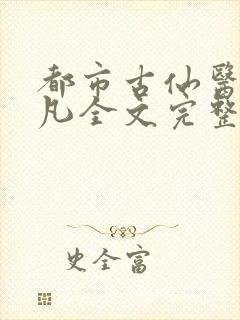 都市古仙醫
凡全文完整
史全富